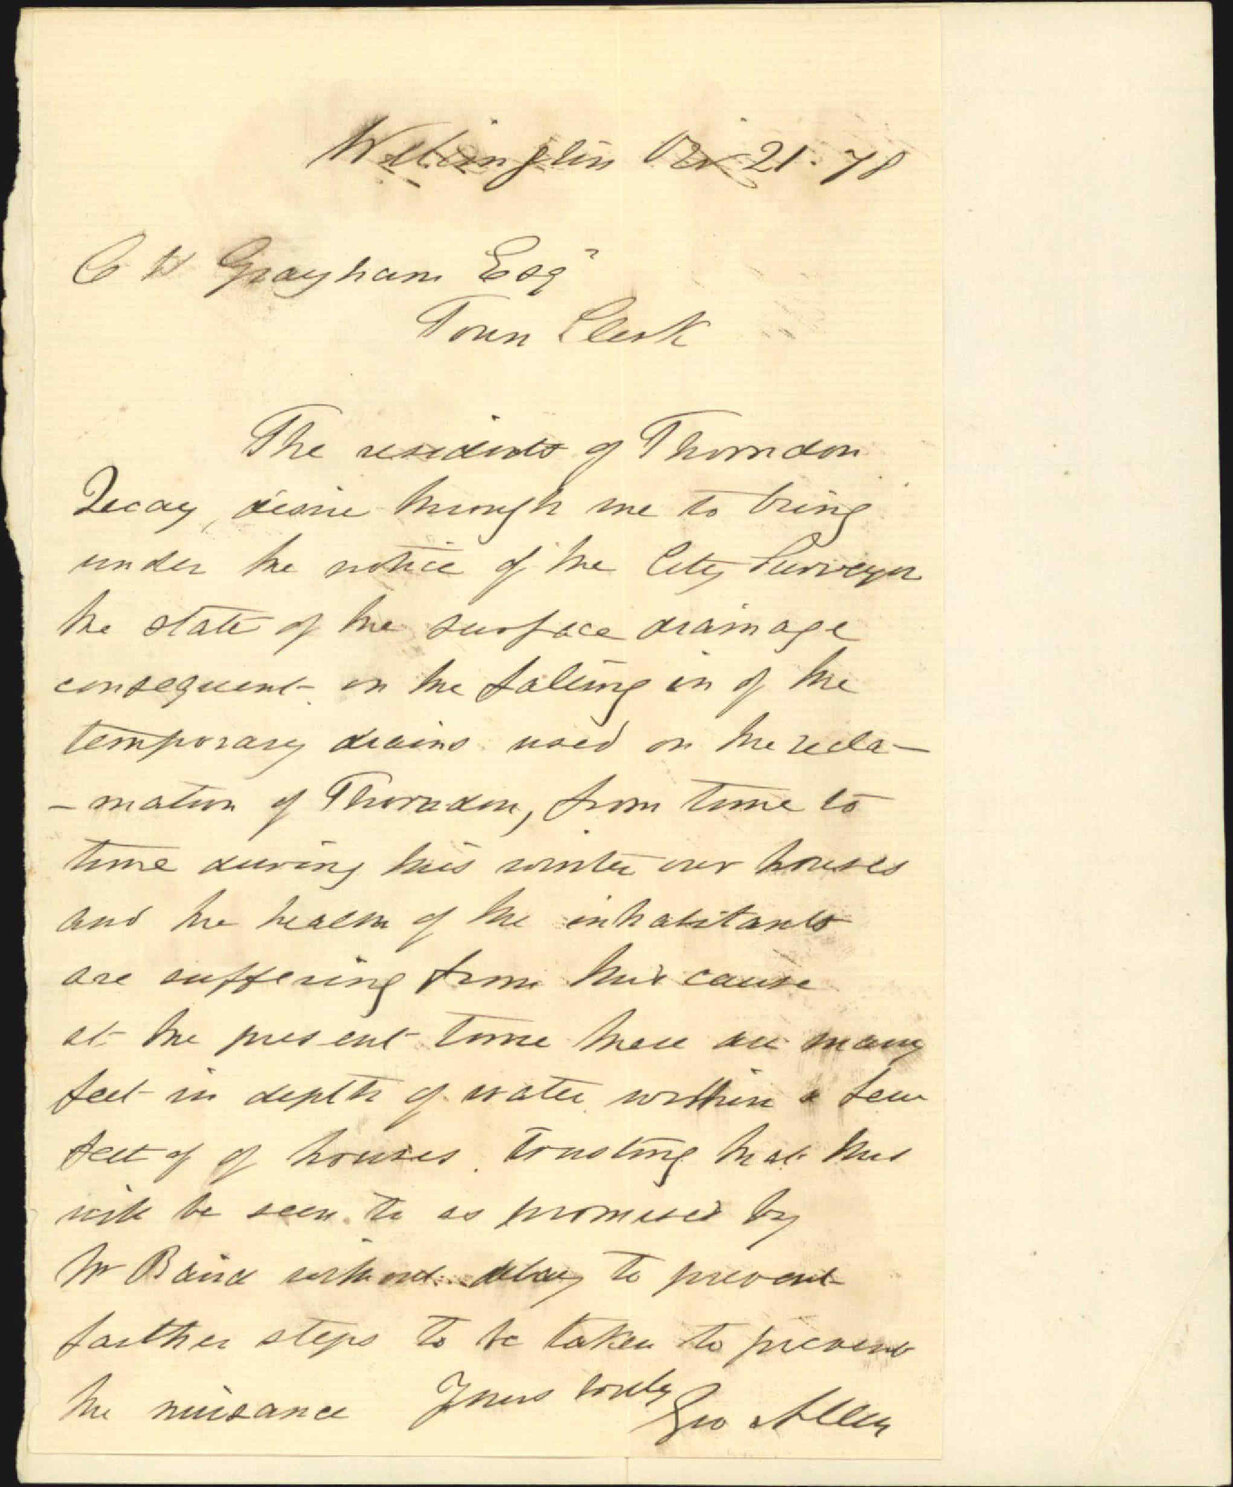 Wellington 21. 78
C H Grayham Esqr
Town Clerk
The residents of Thorndon
Quay, desire through me to bring
under the notice of the City Surveyor
the state of the surface drainage
consequent on the falling in of the
temporary drains used on the recla-
-mation of Thorndon, from time to
time during this winter our houses
and the health of the inhabitants
are suffering from this cause
at the present time there are many
feet in depth of water within a few
feet of of houses. Trusting that this
will be seen to as promised by
Mr Baird without delay to prevent
farther steps to be taken to prevent
the nuisance Yours truly
Geo Allen